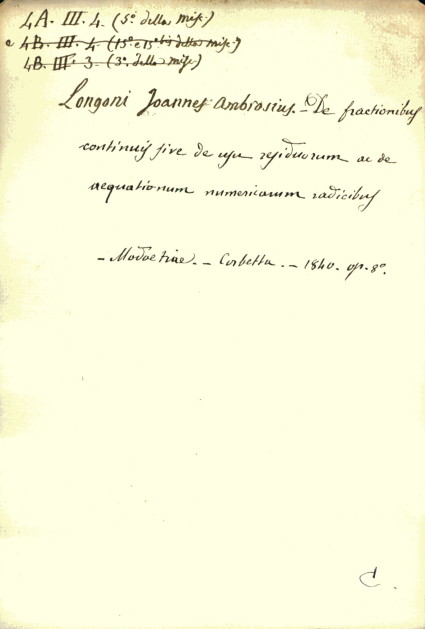 4A. III. 4. (5º della misc.)
e 4B. III. 4. (15º e 15º bis della misc.)
4B. III. 3. (3ª della misc.)
Longoni Joannes Ambrosius. - De fractionibus
continuis sive de usu residuorum ac de
aequationum numericarum radicibus
- Modoetiae. - Corbetta. - 1840. op. 8º.